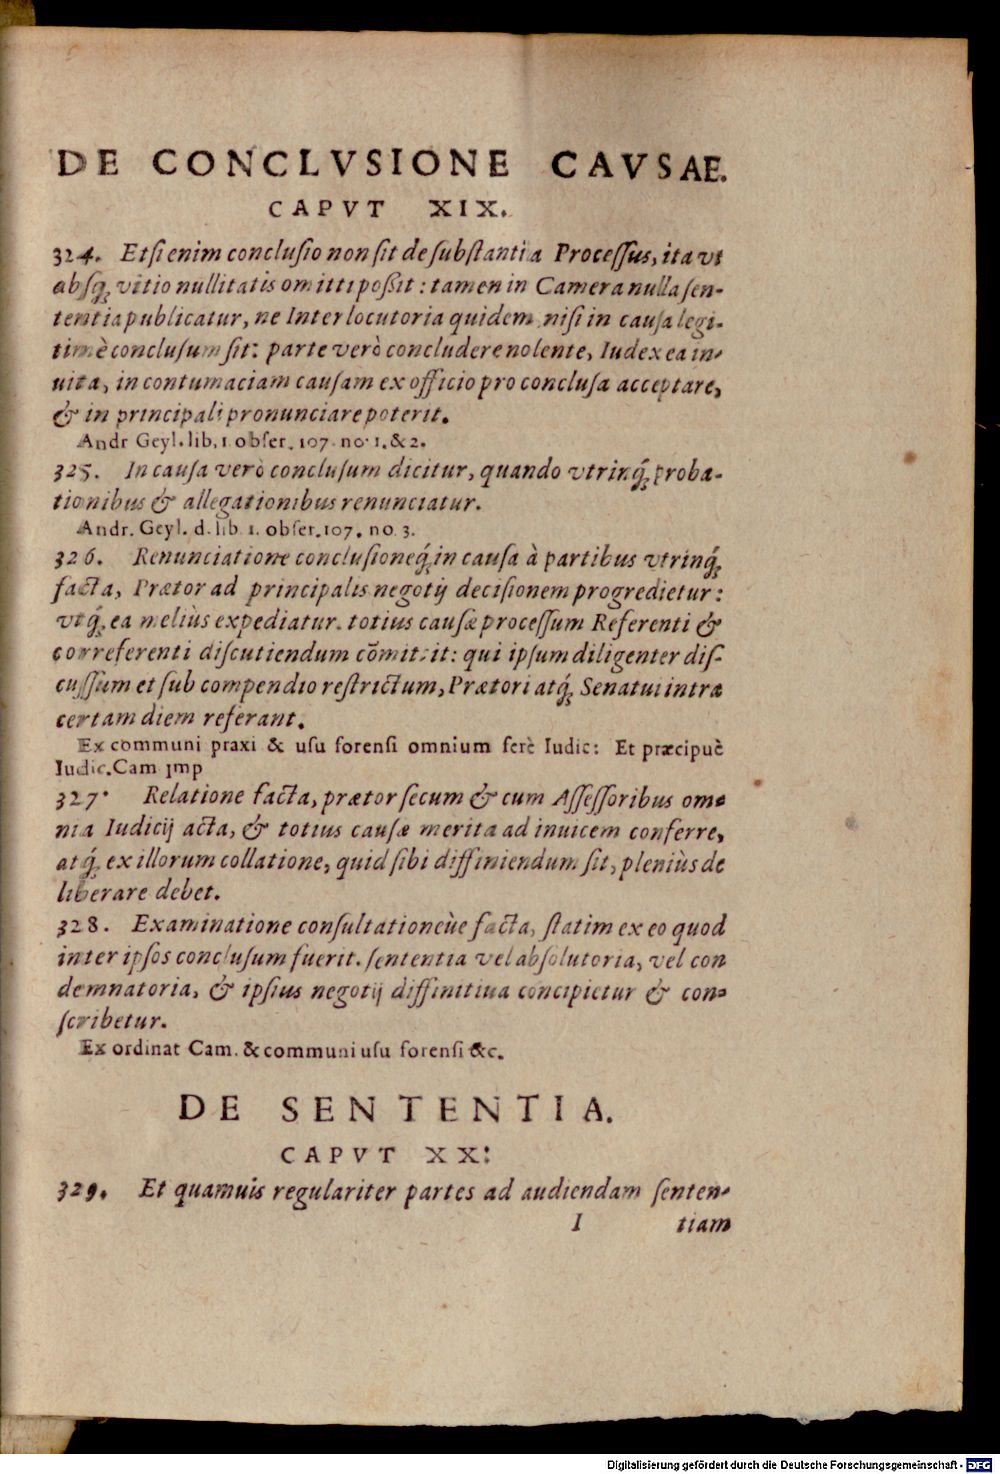 DE CONCLVSIONE CAVSAE.
CAPVT XIX.
324. Etsi enim conclusio non sit de substantia Processus, ita vt
absq́; vitio nullitatis omitti possit: tamen in Camera nulla sen-
tentia publicatur, ne Interlocutoria quidem nisi in causa legi-
timè conclusum sit: parte verò concludere nolente, Iudex ea in-
uita, in contumaciam causam ex officio pro conclusa acceptare,
& in principali pronunciare poterit.
Andr Geyl. lib. 1 obser. 107. no. 1. & 2.
325. In causa verò conclusum dicitur, quando vtrinq́; proba-
tionibus & allegationibus renunciatur.
Andr. Geyl. d. lib 1. obser. 107. no 3.
326. Renunciatione conclusioneq́; in causa à partibus vtrinq́;
facta, Prætor ad principalis negotij decisionem progredietur:
vtq́; ea meliùs expediatur. totius causæ processum Referenti &
correferenti discutiendum cõmittit: qui ipsum diligenter dis-
cussum et sub compendio restrictum, Prætori atq́; Senatui intra
certam diem referant.
Ex communi praxi & usu forensi omnium ferè Iudic: Et præcipuè
Iudic. Cam jmp
327. Relatione facta, prætor secum & cum Assessoribus om-
nia Iudicij acta, & totius causæ merita ad inuicem conferre,
atq́; ex illorum collatione, quid sibi diffiniendum sit, pleniùs de
liberare debet.
328. Examinatione consultationeùe facta, statim ex eo quod
inter ipsos conclusum fuerit. sententia vel absolutoria, vel con
demnatoria, & ipsius negotij diffinitiua concipietur & con-
scribetur.
Ex ordinat Cam. & communi usu forensi &c.
DE SENTENTIA.
CAPVT XX:
329. Et quamuis regulariter partes ad audiendam senten-
I tiam
Digitalisierung gefördert durch die Deutsche Forschungsgemeinschaft - DFG